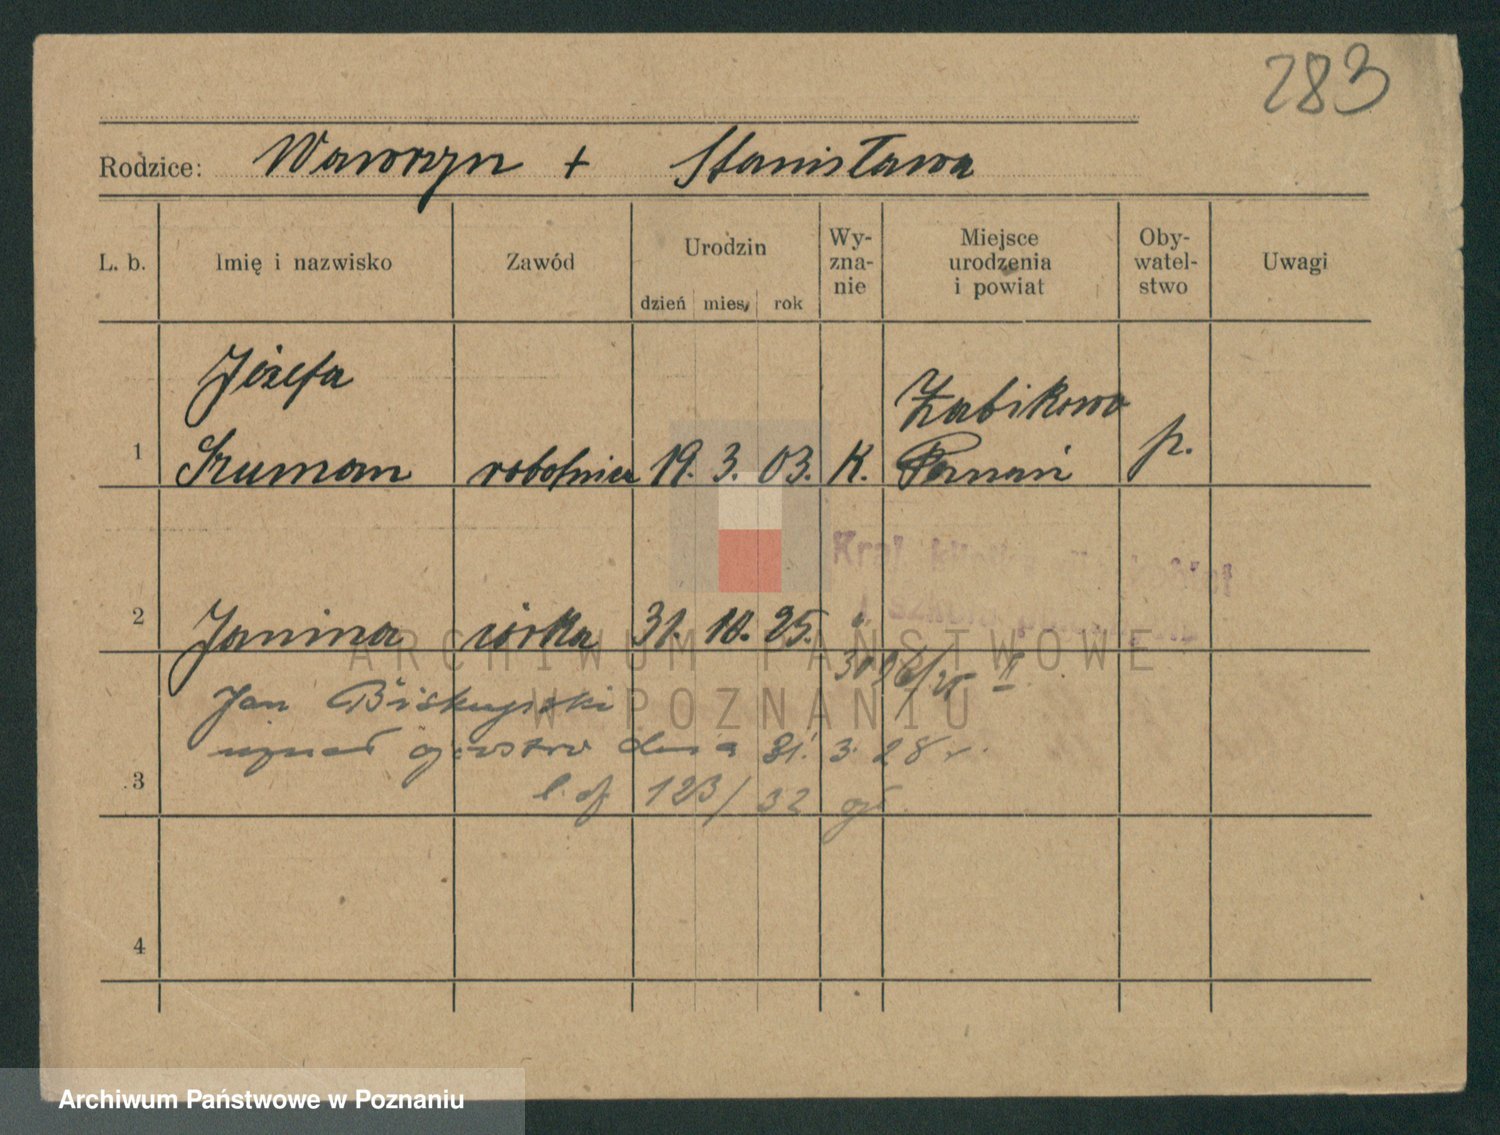 283
Rodzice: Wawrzyn + Stanisława
L. b. Imię i nazwisko Zawód Urodzin dzień mies. rok Wy-zna-nie Miejsce urodzenia i powiat Oby-watel-stwo Uwagi
Józefa Żabikowo
1 Szuman robotnica 19. 3. 03. K. Poznań p.
Kraj. klinika
i szkoła
2 Janina córka 31. 10. 25. "
3096/25 II
Jan Biskupski
uznał ojcostwo dnia 31. 3. 28 r.
3 123/32
4
ARCHIWUM PAŃSTWOWE
W POZNANIU
Archiwum Państwowe w Poznaniu